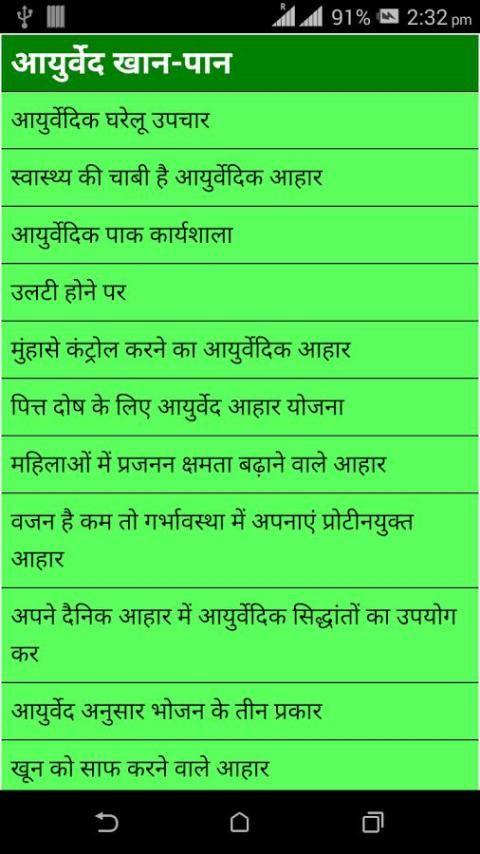 R 91% 2:32 pm
आयुर्वेद खान-पान
आयुर्वेदिक घरेलू उपचार
स्वास्थ्य की चाबी है आयुर्वेदिक आहार
आयुर्वेदिक पाक कार्यशाला
उलटी होने पर
मुंहासे कंट्रोल करने का आयुर्वेदिक आहार
पित्त दोष के लिए आयुर्वेद आहार योजना
महिलाओं में प्रजनन क्षमता बढ़ाने वाले आहार
वजन है कम तो गर्भावस्था में अपनाएं प्रोटीनयुक्त
आहार
अपने दैनिक आहार में आयुर्वेदिक सिद्धांतों का उपयोग
कर
आयुर्वेद अनुसार भोजन के तीन प्रकार
खून को साफ करने वाले आहार